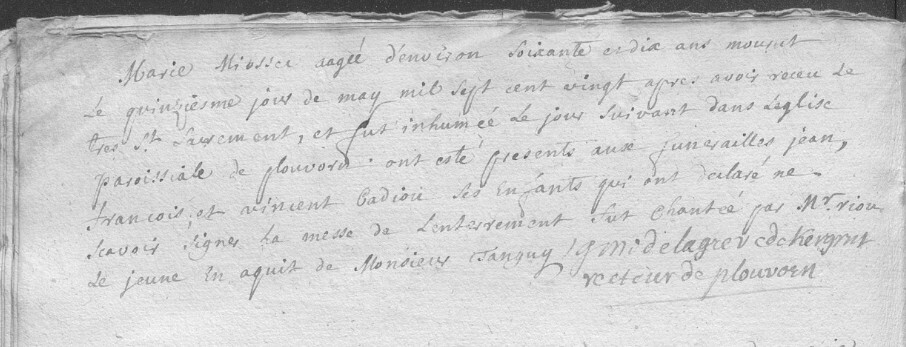 Marie Miossec aagéé d'environ soixante et dix ans mourut
Le quinziesme jour de may mil sept cent vingt apres avoir receu Le
tres St. Sacrement, et fut inhuméé Le jour suivant dans Leglise
paroissiale de plouvorn. ont esté presents aux funerailles jean,
francois, et vincent Cadiou ses Enfants qui ont declaré ne
scavoir signer La messe de Lenterrement fut Chantéé par Mr. riou
Le jeune En aquit de Monsieur Tanguy
recteur de plouvorn